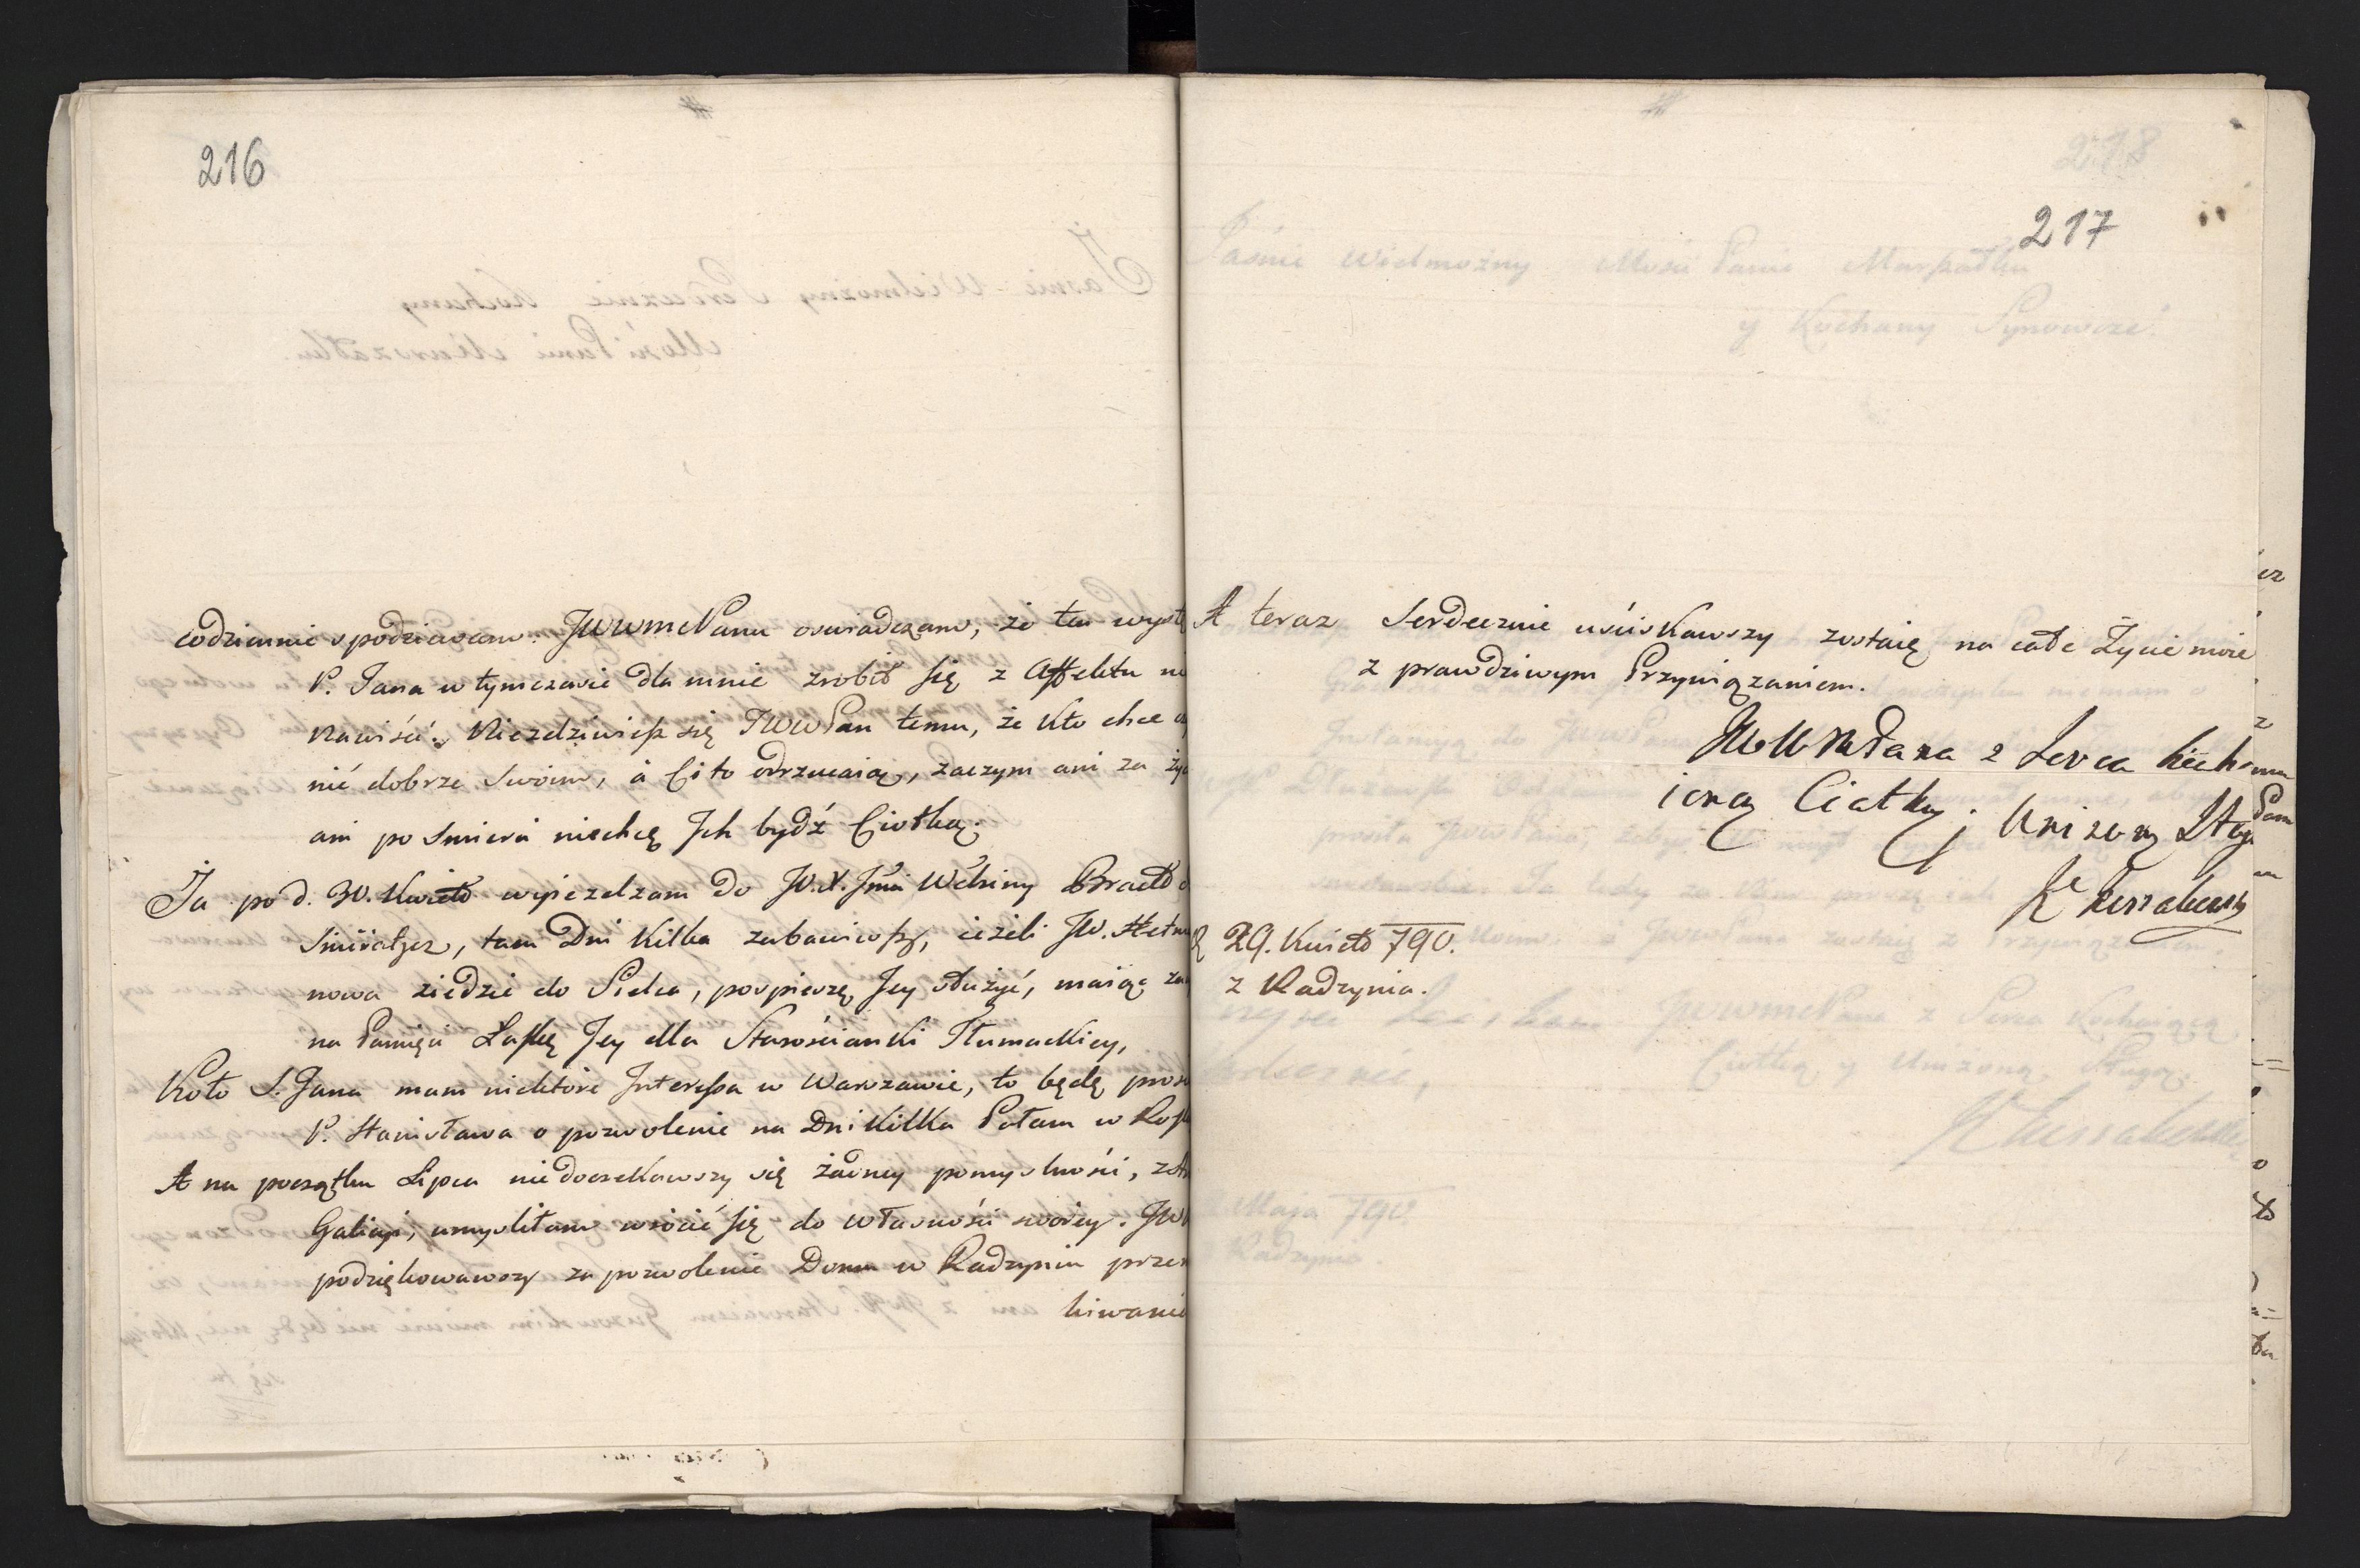 216
codziennie spodziewam. JWWmcPanu oswiadczam, że ten wystę
P. Jana w tymczasie dla mnie zrobił się z Affektu nie
nawiść. Niezdziwisz się JWWPan temu, że kto chce
nić dobrze Swoim, à Ci to odrzucaią, zaczym ani za życ
ani po Smierci niechcę Jch bydź Ciotką.
Ja po d. 30. Kwiet. wyiezdzam do JW. Jmci Wdziny Bracł
tam Dni Kilka zabawiwszy, ieżeli JW. Hetma
nowa ziedzie do Siedlec, pospieszę Jey służyć, maiąc za
na Pamięci Łaskę Jey dla Starościanki Tłumackiey,
Koło S. Jana mam niektóre Jnteressa w Warszawie, to będę pros
P. Stanisława o pozwolenie na Dni Kilka Pałacu w
A na początku Lipca niedoczekawszy się żadney pomyslności, z
Galicyi, umysliłam wrócić się do własności swoiey. JW
podziękowawszy za pozwolenie Domu w Radzyniu przem
kiwanie
217
A teraz Serdecznie uściskawszy zostaię na całe Życie moie
z prawdziwym Przywiązaniem.
JWWMPana z Serca kocha
iącą Ciotką i Unizoną Sług
K Kossakowska
29. Kwiet. 790.
z Radzynia.